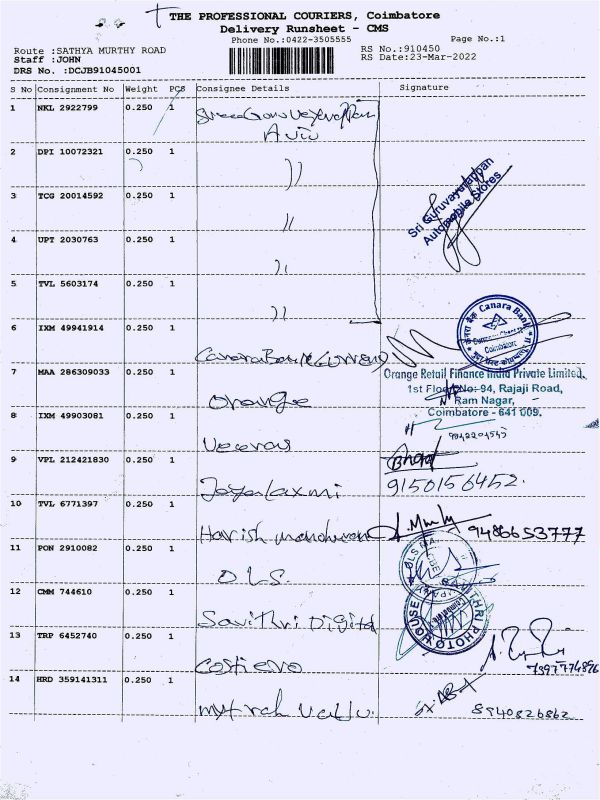 THE PROFESSIONAL COURIERS, Coimbatore
Delivery Runsheet - CMS
Phone No.:0422-3505555 Page No.:1
Route :SATHYA MURTHY ROAD RS No.:910450
Staff :JOHN RS Date:23-Mar-2022
DRS No. :DCJB91045001
S No Consignment No Weight PCS Consignee Details Signature
1 NKL 2922799 0.250 1
2 DPI 10072321 0.250 1 "
3 TCG 20014592 0.250 1 "
Sri Guruvayurappan
Automobile Stores
4 UPT 2030763 0.250 1 "
5 TVL 5603174 0.250 1 "
Canara Bank
Coimbatore
6 IXM 49941914 0.250 1 Canara Bank
7 MAA 286309033 0.250 1 Orange
Orange Retail Finance India Private Limited,
1st Floor No: 94, Rajaji Road,
Ram Nagar,
Coimbatore - 641 009.
8 IXM 49903081 0.250 1
9 VPL 212421830 0.250 1 Jeyalaxmi 9150156452.
10 TVL 6771397 0.250 1 Harish 9486653777
11 PON 2910082 0.250 1 OLS.
12 CMM 744610 0.250 1 Savithri Digital
PHOTO HOUSE
13 TRP 6452740 0.250 1 7397774896
14 HRD 359141311 0.250 1 8940826862